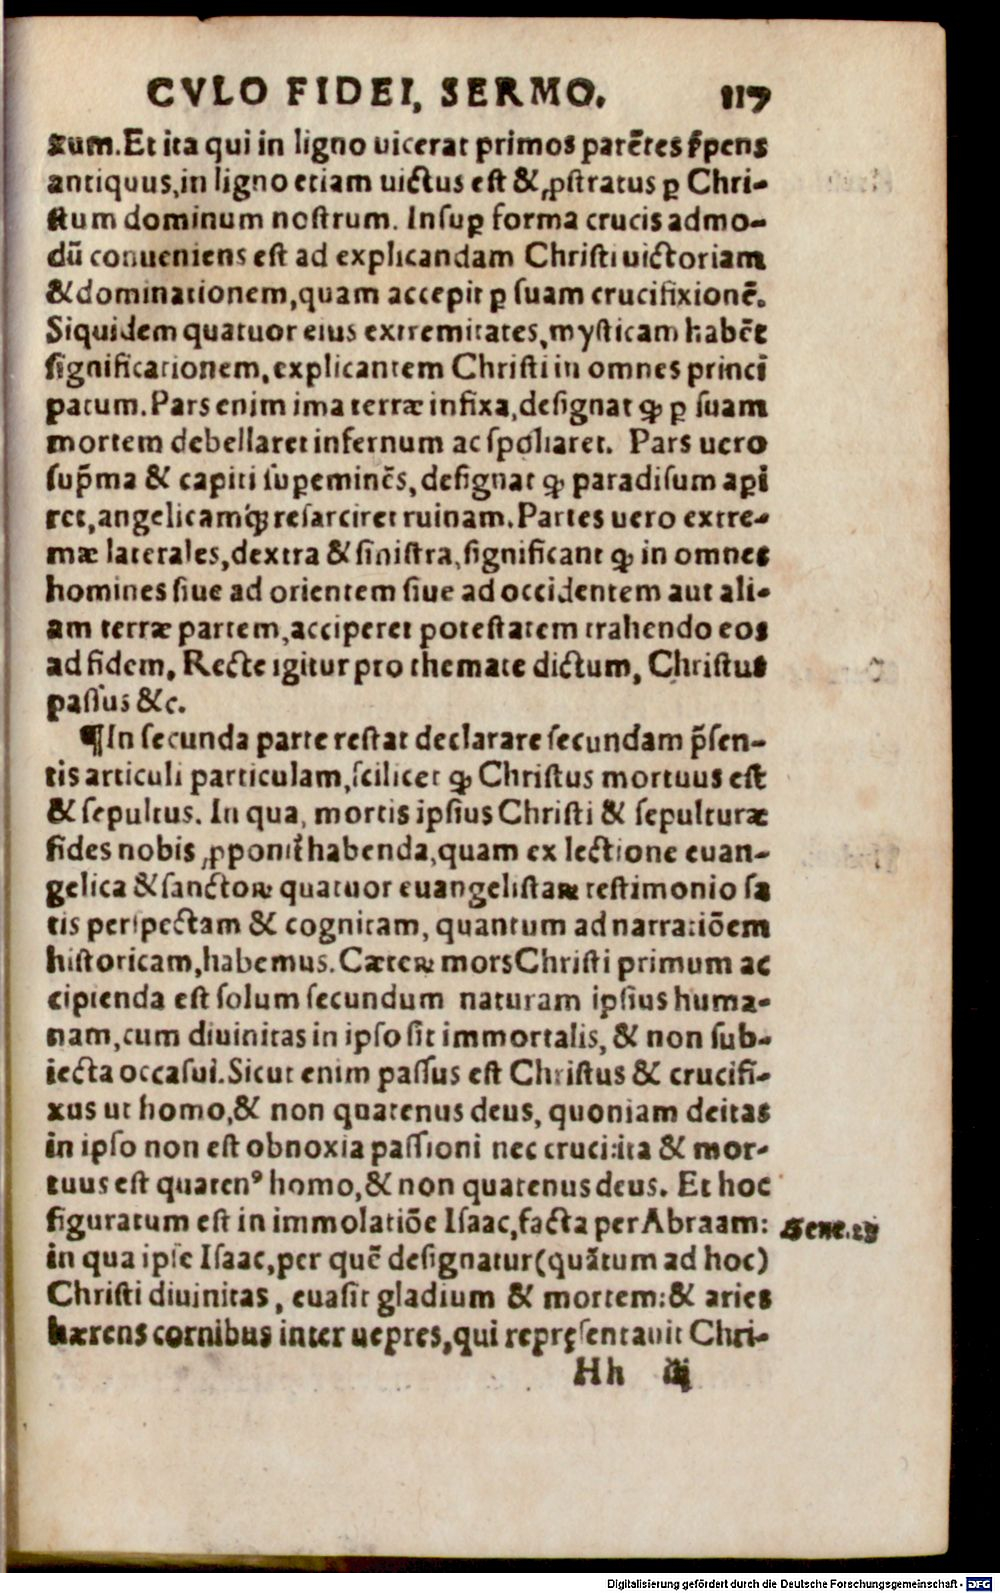 CVLO FIDEI, SERMO. 117
xum. Et ita qui in ligno uicerat primos parẽtes s̃pens
antiquus, in ligno etiam uictus est & ꝓstratus ꝑ Chri-
stum dominum nostrum. Insuꝑ forma crucis admo-
dũ conueniens est ad explicandam Christi uictoriam
& dominationem, quam accepit ꝑ suam crucifixionẽ.
Siquidem quatuor eius extremitates, mysticam habẽt
significationem, explicantem Christi in omnes princi
patum. Pars enim ima terræ infixa, designat ꝙ ꝑ suam
mortem debellaret infernum ac spoliaret. Pars uero
sup̃ma & capiti suꝑeminẽs, designat ꝙ paradisum aꝑi
ret, angelicamq́ꝫ resarciret ruinam. Partes uero extre-
mæ laterales, dextra & sinistra, significant ꝙ in omnes
homines siue ad orientem siue ad occidentem aut ali-
am terræ partem, acciperet potestatem trahendo eos
ad fidem. Recte igitur pro themate dictum, Christus
passus &c.
¶In secunda parte restat declarare secundam p̃sen-
tis articuli particulam, scilicet ꝙ Christus mortuus est
& sepultus. In qua, mortis ipsius Christi & sepulturæ
fides nobis ꝓponit̃ habenda, quam ex lectione euan-
gelica & sanctoꝝ quatuor euangelistaꝝ testimonio sa
tis perspectam & cognitam, quantum ad narratiõem
historicam, habemus. Cæteꝝ mors Christi primum ac
cipienda est solum secundum naturam ipsius huma-
nam, cum diuinitas in ipso sit immortalis, & non sub-
iecta occasui. Sicut enim passus est Christus & crucifi-
xus ut homo, & non quatenus deus, quoniam deitas
in ipso non est obnoxia passioni nec cruci: ita & mor-
tuus est quatenꝰ homo, & non quatenus deus. Et hoc
figuratum est in immolatiõe Isaac, facta per Abraam: Gene.22
in qua ipse Isaac, per quẽ designatur (quãtum ad hoc)
Christi diuinitas, euasit gladium & mortem: & aries
hærens cornibus inter uepres, qui repręsentauit Chri-
Hh iij
Digitalisierung gefördert durch die Deutsche Forschungsgemeinschaft - DFG